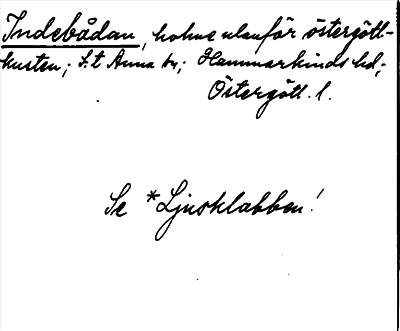 Indebådan, holme utanför östergött-
kusten; S:t Anna sn; Hammarkinds hd;
Östergötl. l.
Se *Ljusklabben!